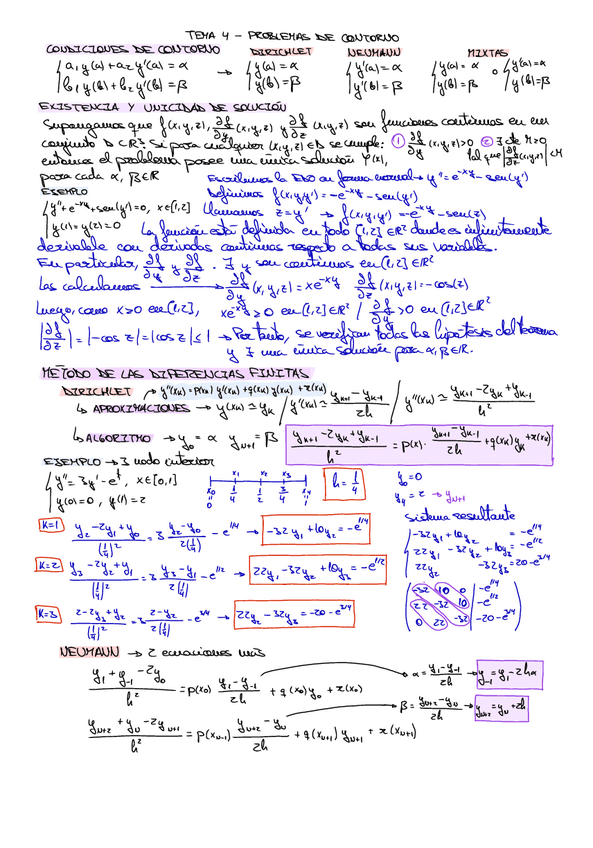 TEMA 4 - PROBLEMAS DE CONTORNO
CONDICIONES DE CONTORNO DIRICHLET NEUMANN MIXTAS
{ a₁y(a)+a₂y'(a)=α → { y(a)=α { y'(a)=α { y(a)=α o { y'(a)=α
b₁y(b)+b₂y'(b)=β y(b)=β y'(b)=β y'(b)=β y(b)=β
EXISTENCIA Y UNICIDAD DE SOLUCIÓN
Supongamos que f(x,y,z), ∂f/∂y (x,y,z) y ∂f/∂z (x,y,z) son funciones continuas en un
conjunto D⊂R³. Si para cualquier (x,y,z)∈D se cumple: ① ∂f/∂y (x,y,z)>0 ② ∃ cte M≥0
entonces el problema posee una única solución φ(x), tal que |∂f/∂z (x,y,z)|≤M
para cada α, β∈R
Escribimos la EDO en forma normal → y''=e^-xy - sen(y')
EJEMPLO
Definimos f(x,y,y')=-e^-xy - sen(y')
{ y''+e^-xy+sen(y')=0, x∈[1,2] Llamamos z=y' → f(x,y,z)=-e^-xy - sen(z)
y(1)=y(2)=0 → La función está definida en todo [1,2]∈R² donde es infinitamente
derivable con derivadas continuas respecto a todas sus variables.
En particular, ∂f/∂y y ∂f/∂z. ∃ y son continuas en [1,2]∈R²
Las calculamos → ∂f/∂y (x,y,z)=xe^-xy ∂f/∂z (x,y,z)=-cos(z)
Luego, como x>0 en [1,2], xe^-xy ≥0 en [1,2]∈R² / ∂f/∂y >0 en [1,2]∈R²
|∂f/∂z|=|-cos z|=|cos z|≤1 → Por tanto, se verifican todas las hipótesis del teorema
y ∃ una única solución para α,β∈R.
MÉTODO DE LAS DIFERENCIAS FINITAS
DIRICHLET → y''(xₖ)=p(xₖ)y'(xₖ)+q(xₖ)y(xₖ)+r(xₖ)
↳ APROXIMACIONES → y(xₖ)≃yₖ / y'(xₖ)≃ (yₖ₊₁-yₖ₋₁)/2h / y''(xₖ)≃ (yₖ₊₁-2yₖ+yₖ₋₁)/h²
↳ ALGORITMO → y₀=α y_N+1=β (yₖ₊₁-2yₖ+yₖ₋₁)/h² = p(x)·(yₖ₊₁-yₖ₋₁)/2h +q(xₖ)yₖ+r(xₖ)
EJEMPLO → 3 nodo interior
{ y''=3y'-e^t, x∈[0,1] x₀ 0 x₁ 1/4 x₂ 2/4 x₃ 3/4 x₄ 1 h=1/4 y₀=0
y(0)=0, y(1)=2 y₄=2 → y_N+1
sistema resultante
K=1 (y₂-2y₁+y₀)/(1/4)² = 3 (y₂-y₀)/2(1/4) - e^1/4 → -32y₁+10y₂=-e^1/4
K=2 (y₃-2y₂+y₁)/(1/4)² = 3 (y₃-y₁)/2(1/4) - e^1/2 → 22y₁-32y₂+10y₃=-e^1/2
K=3 (2-2y₃+y₂)/(1/4)² = 3 (2-y₂)/2(1/4) - e^3/4 → 22y₂-32y₃=-20-e^3/4
{ -32y₁+10y₂ = -e^1/4
22y₁-32y₂+10y₃=-e^1/2
22y₂ -32y₃=-20-e^3/4
( -32 10 0 | -e^1/4
22 -32 10 | -e^1/2
0 22 -32 | -20-e^3/4 )
NEUMANN → 2 ecuaciones más
(y₁+y₋₁-2y₀)/h² = p(x₀) (y₁-y₋₁)/2h + q(x₀)y₀+r(x₀) → α=(y₁-y₋₁)/2h → y₋₁=y₁-2hα
(y_N+2+y_N-2y_N+1)/h² = p(x_N+1) (y_N+2-y_N)/2h + q(x_N+1)y_N+1+r(x_N+1) → β=(y_N+2-y_N)/2h → y_N+2=y_N+2h